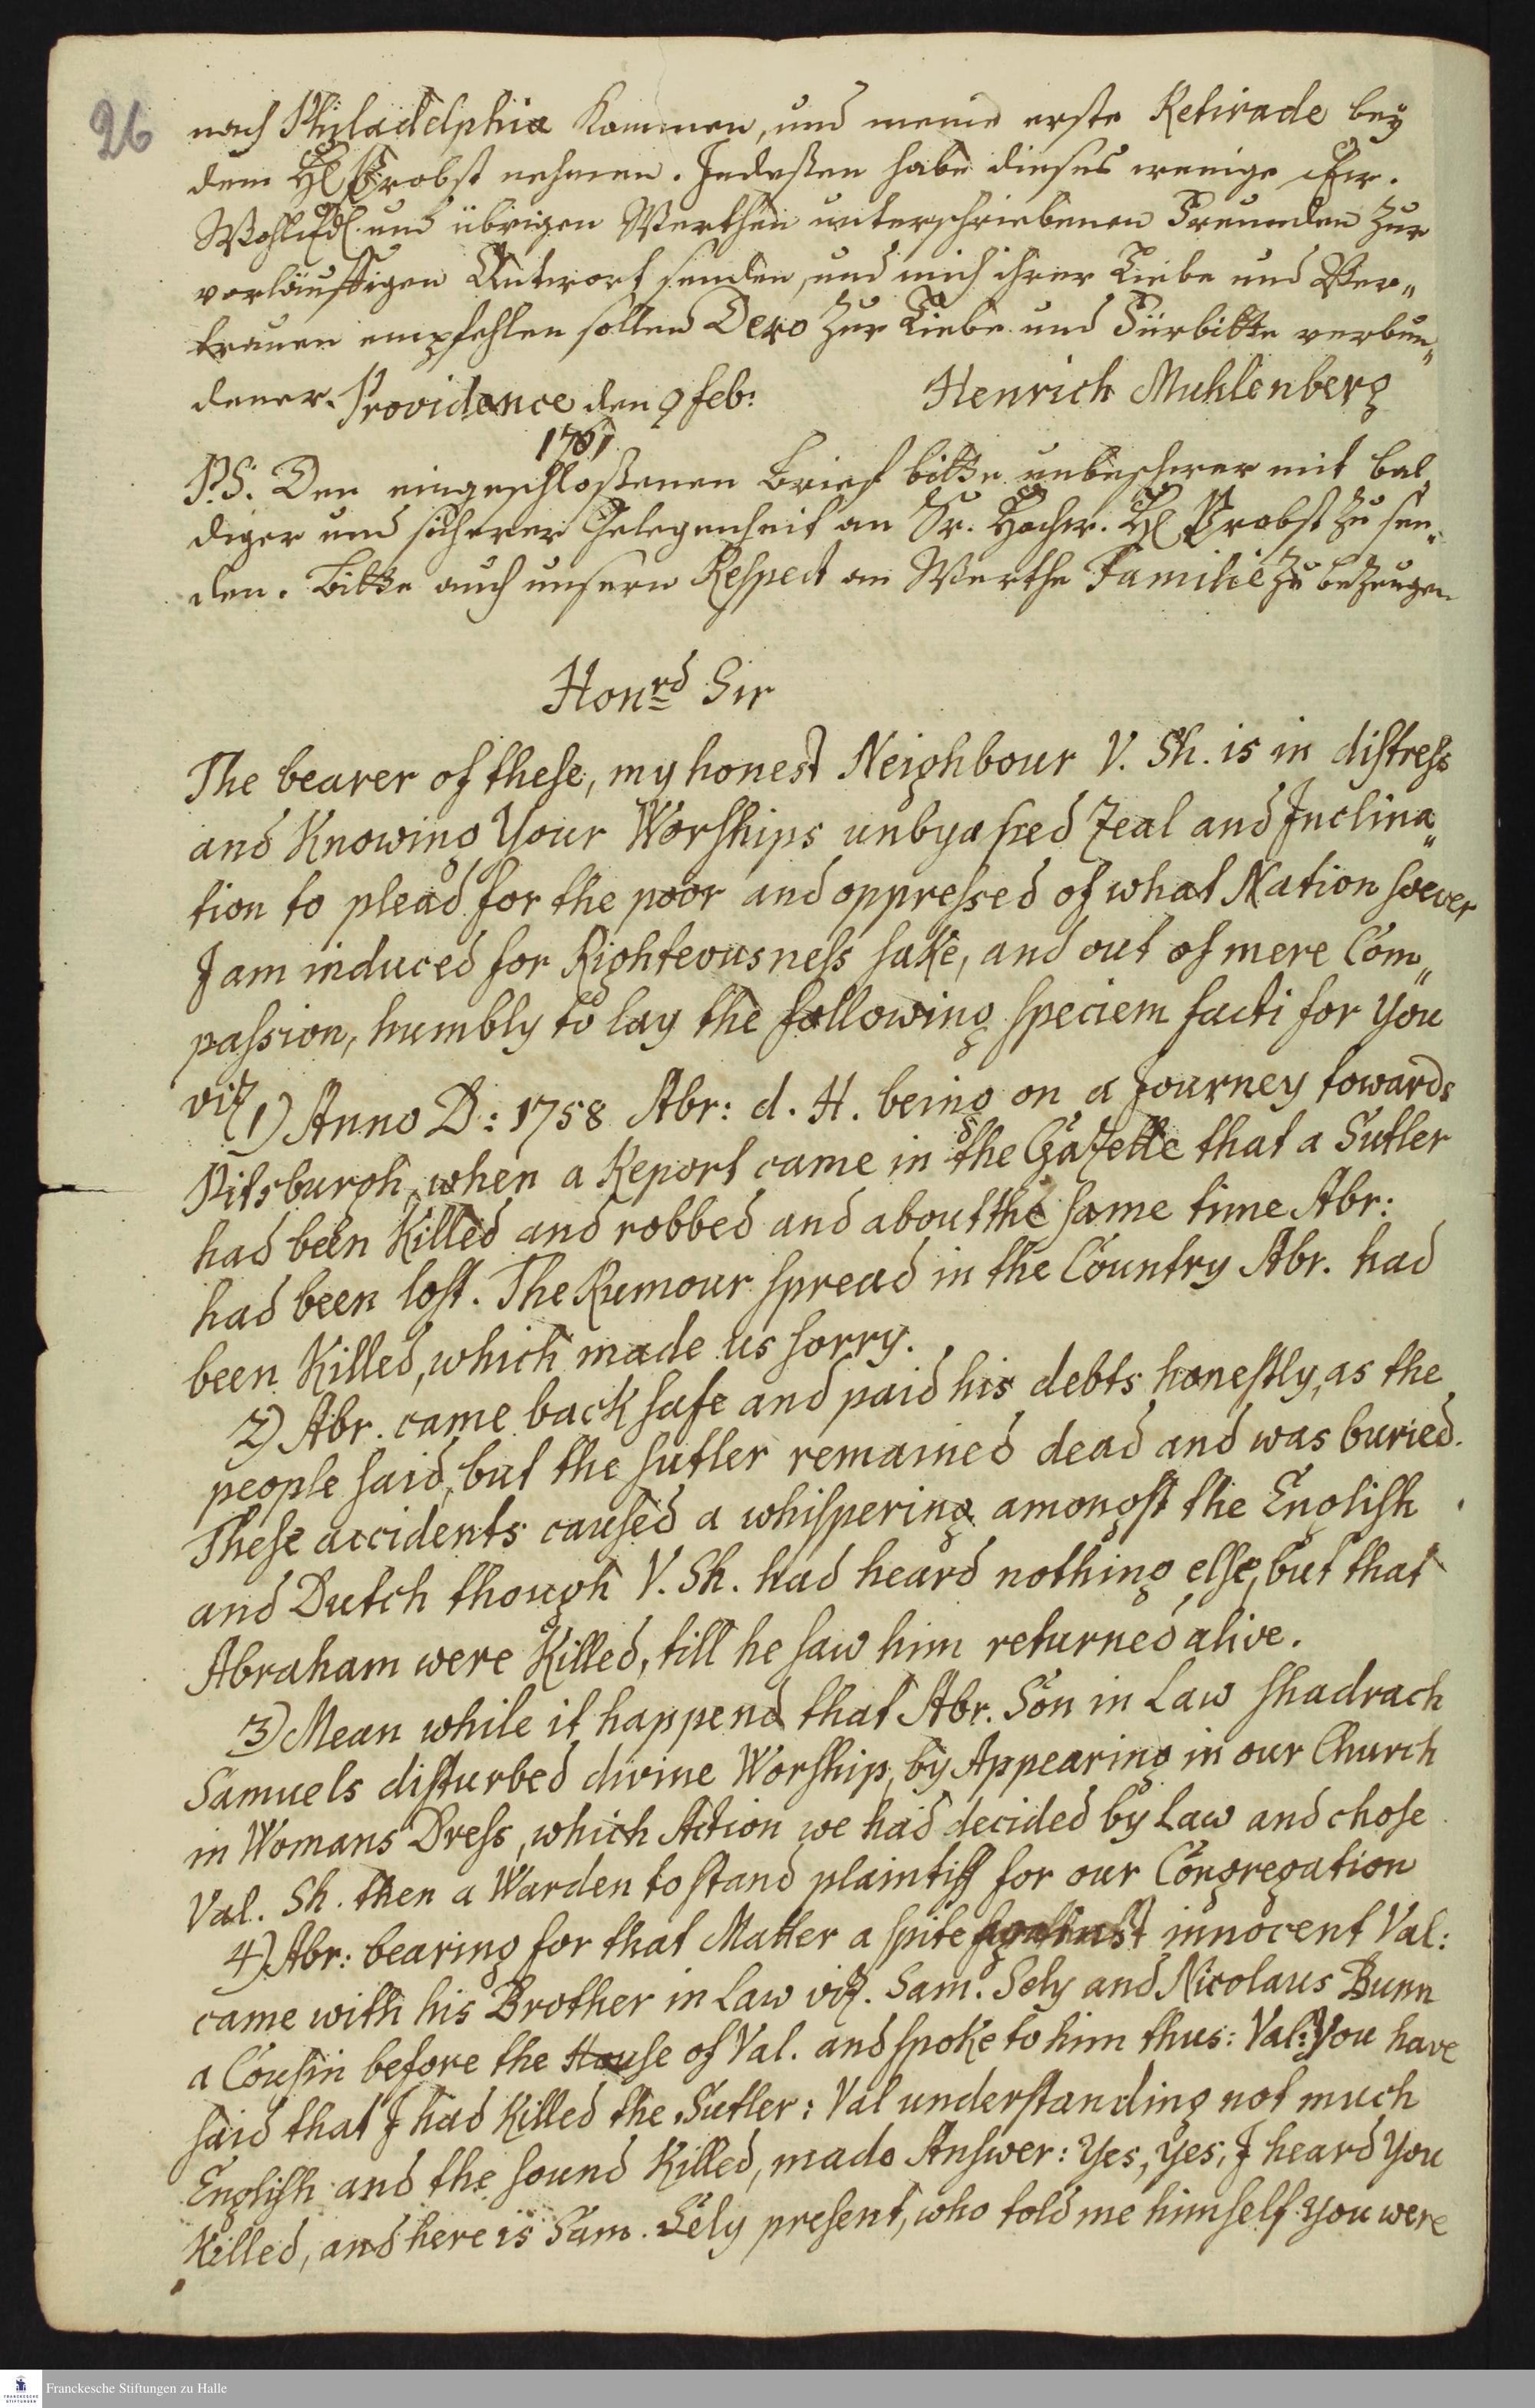 26
nach Philadelphia kommen, und meine erste Retirade bey
dem H Probst nehmen. Indeßen habe dieses wenige Ew.
WohlEd. und übrigen Werthen unterschriebenen Freunden zur
vorläuffigen Antwort senden, und mich ihrer Liebe und Ver„
trauen empfehlen sollen Dero zur Liebe und Fürbitte verbun„
dener. Providence den 9 feb: Henrich Muhlenberg
1761
P.S. Den eingeschloßenen Brief bitte unbeschwer mit bal„
diger und sicherer Gelegenheit an Sr. Hochw. H Probst zu sen„
den. Bitte auch unsern Respect an Werthe Familie zu bezeugen
Honrd Sir
The bearer of these, my honest Neighbour V. Sh. is in distress
and Knowing Your Worships unbyassed Zeal and Inclina„
tion to plead for the poor and oppressed of what Nation soever
I am induced for Righteousness sake, and out of mere Com„
passion, humbly to lay the following speciem facti for You
viz
(1) Anno D: 1758 Abr: d. H. being on a Journey towards
Pitsburgh, when a Report came in the Gazette that a Sutler
had been Killed and robbed and about the same time Abr:
had been lost. The Rumour spread in the Country Abr. had
been Killed, which made us sorry.
2) Abr. came back safe and paid his debts honestly, as the
people said, but the sutler remained dead and was buried.
These accidents caused a whispering amongst the English
and Dutch though V. Sh. had heard nothing else, but that
Abraham were Killed, till he saw him returned alive.
3) Mean while it happend that Abr. Son in Law Shadrach
Samuels disturbed divine Worship, by Appearing in our Church
in Womans Dress, which Action we had decided by Law and chose
Val. Sh. then a Warden to stand plaintiff for our Congregation
4) Abr: bearing for that Matter a spite against innocent Val:
came with his Brother in Law viz. Sam. Sely and Nicolaus Bunn
a Cousin before the House of Val. and spoke to him thus: Val: You have
said that I had Killed the Sutler: Val understanding not much
English and the sound Killed, made Answer: Yes, Yes, I heard You
Killed, and here is Sam. Sely present, who told me himself You were
Franckesche Stiftungen zu Halle